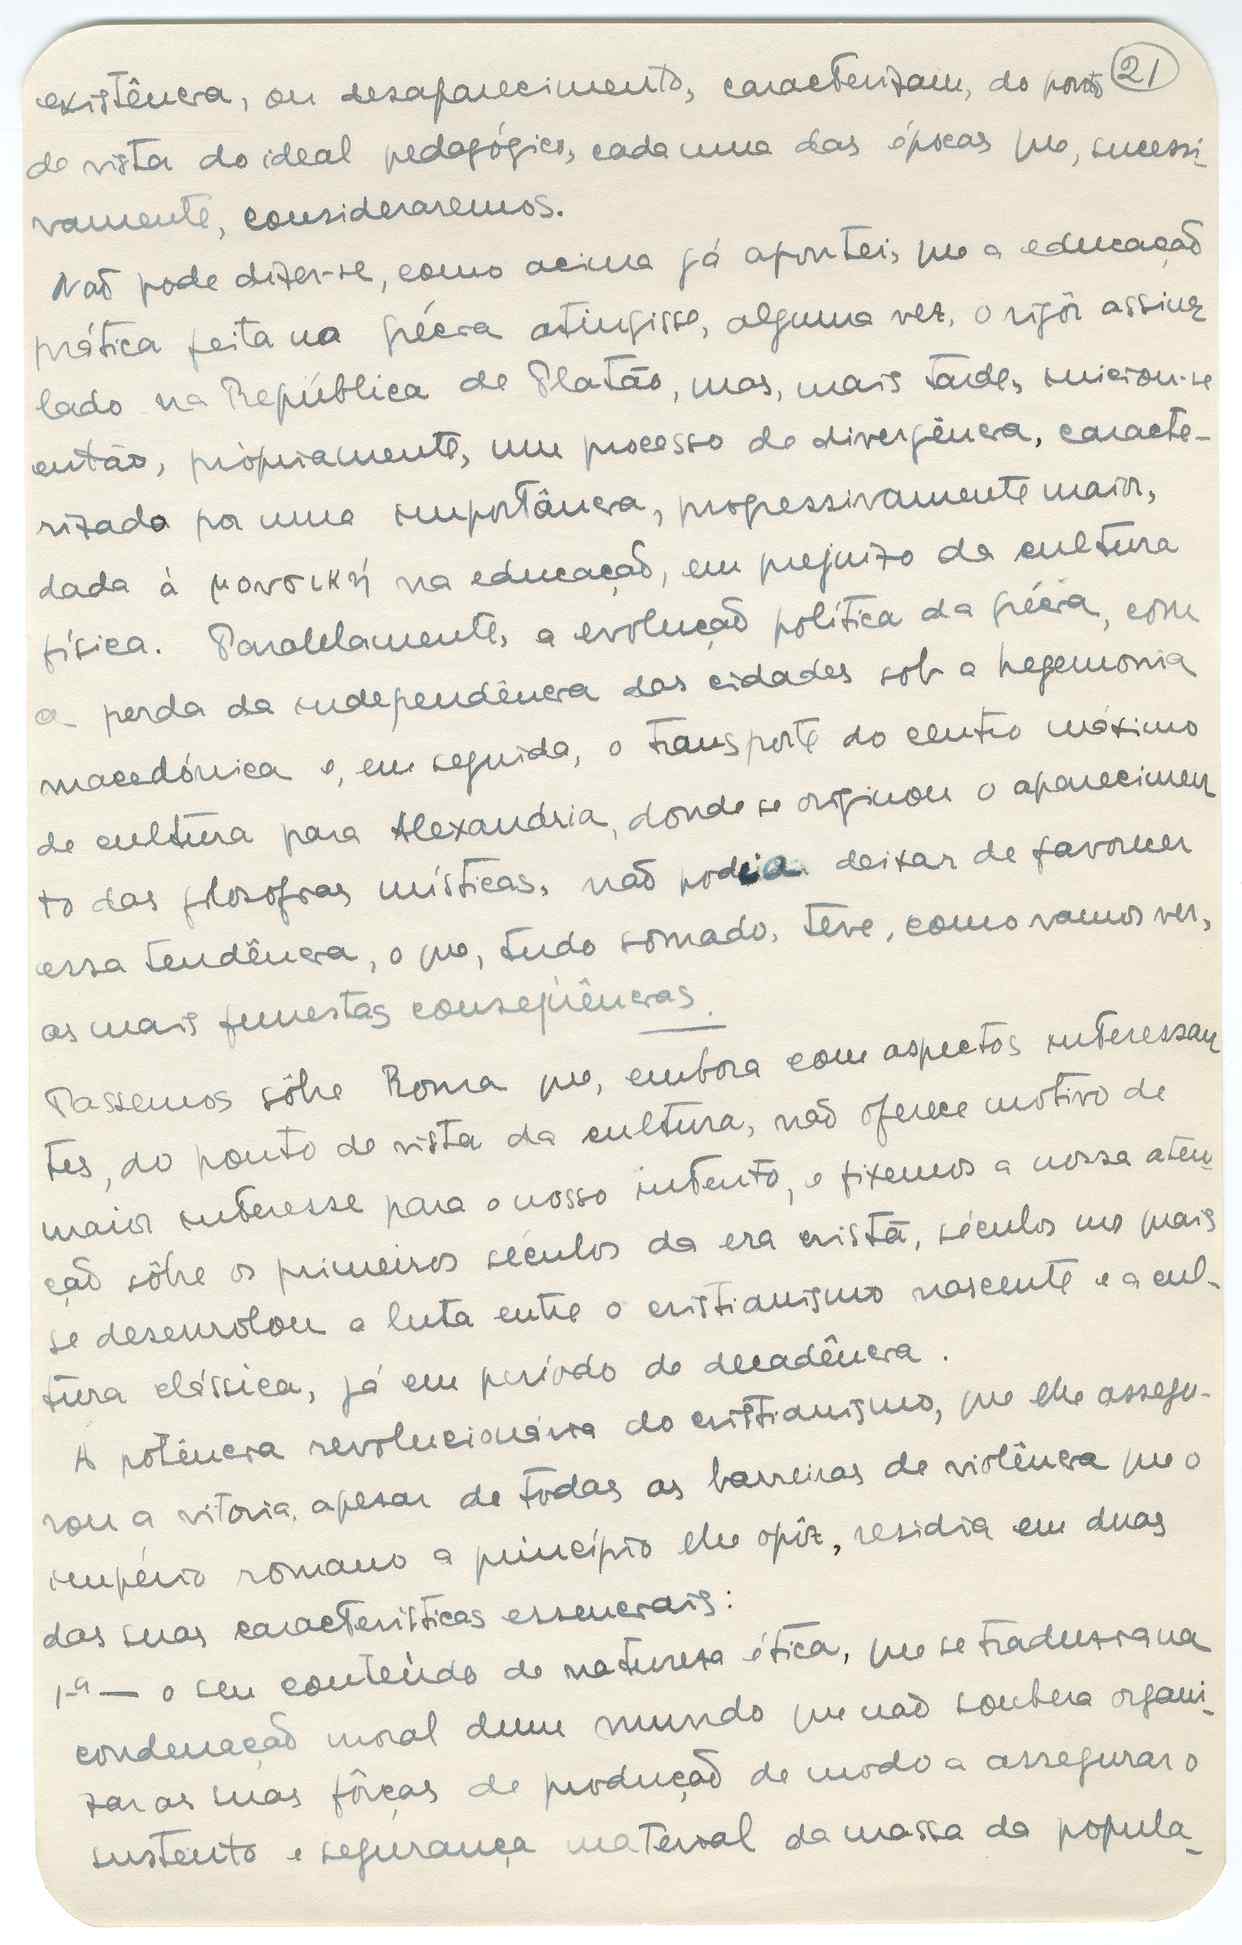 21
existência, ou desaparecimento, caracterizam, do ponto
de vista do ideal pedagógico, cada uma das épocas que, sucessi-
vamente, consideraremos.
Não pode dizer-se, como acima já apontei, que a educação
prática feita na Grécia atingisse, alguma vez, o rigôr assina
lado na República de Platão, mas, mais tarde, iniciou-se
então, pròpriamente, um processo de divergência, caracte-
rizado por uma importância, progressivamente maior,
dada à μουσική na educação, em prejuizo da cultura
física. Paralelamente, a evolução política da Grécia, com
a perda da independência das cidades sob a hegemonia
macedónica e, em seguida, o transporte do centro máximo
de cultura para Alexandria, donde se originou o aparecimen
to das filosofias místicas, não podia deixar de favorecer
essa tendência, o que, tudo somado, teve, como vamos ver,
as mais funestas conseqüências.
Passemos sôbre Roma que, embora com aspectos interessan
tes, do ponto de vista da cultura, não oferece motivo de
maior interesse para o nosso intento, e fixemos a nossa aten-
ção sôbre os primeiros séculos da era cristã, séculos nos quais
se desenrolou a luta entre o cristianismo nascente e a cul-
tura clássica, já em período de decadência.
A potência revolucionária do cristianismo, que lhe assegu-
rou a vitoria, apesar de todas as barreiras de violência que o
império romano a princípio lhe opôz, residia em duas
das suas caracteristicas essenciais:
1-ª — o seu conteúdo de natureza ética, que se traduzia na
condenação moral dum mundo que não soubera organi-
zar as suas fôrças de produção de modo a assegurar o
sustento e segurança material da massa da popula-